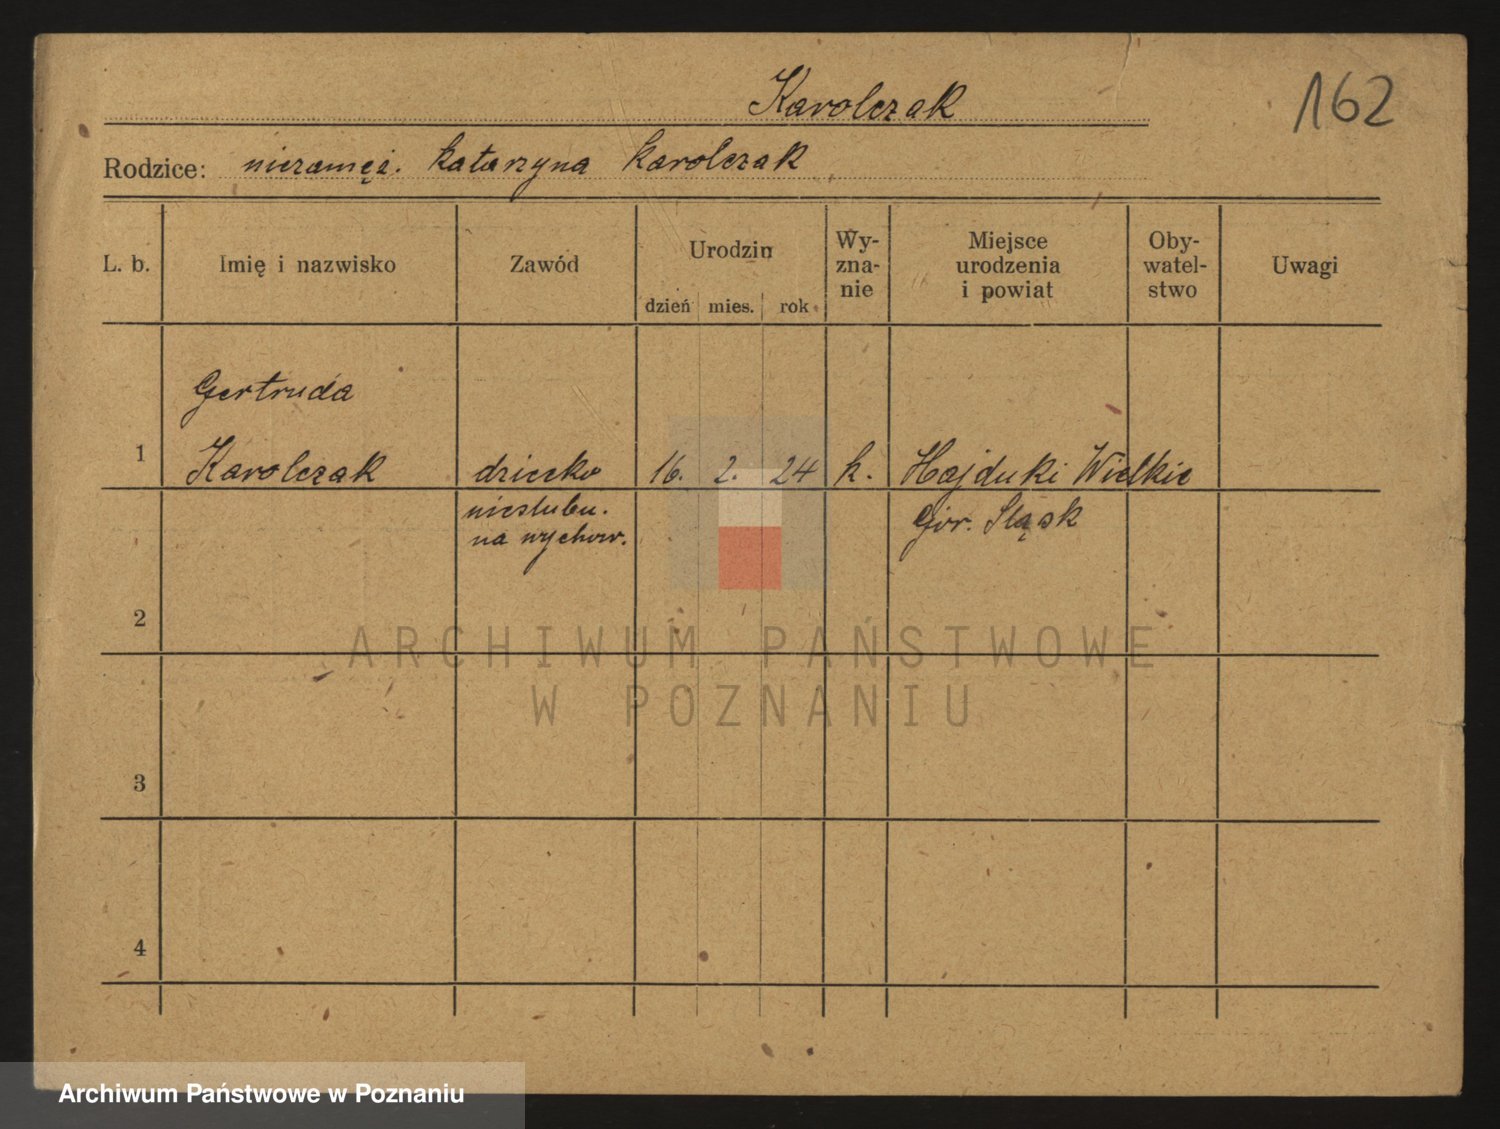 Karolczak
162
Rodzice: niezamęż. Katarzyna Karolczak
L. b.
Imię i nazwisko
Zawód
Urodzin
dzień mies. rok
Wy-
zna-
nie
Miejsce
urodzenia
i powiat
Oby-
watel-
stwo
Uwagi
Gertruda
1 Karolczak dziecko 16. 2. 24 k. Hajduki Wielkie
nieslubu.
na wychow.
Gór. Sląsk
2
ARCHIWUM PAŃSTWOWE
W POZNANIU
3
4
Archiwum Państwowe w Poznaniu